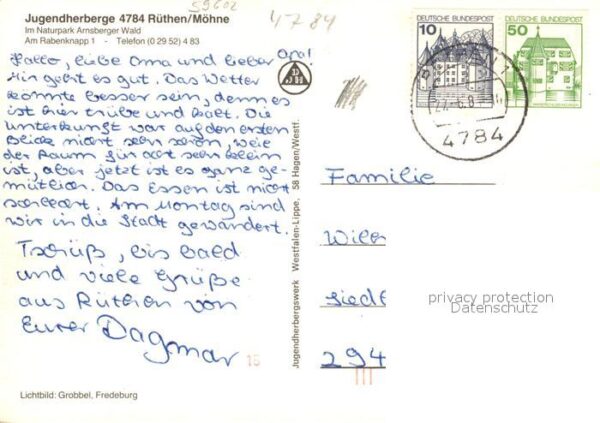 59602
4784
Jugendherberge 4784 Rüthen/Möhne
Im Naturpark Arnsberger Wald
Am Rabenknapp 1 - Telefon (0 29 52) 4 83
Hallo, liebe Oma und lieber Opa!
Mir geht es gut. Das Wetter
könnte besser sein, denn es
ist hier trübe und kalt. Die
Unterkunft war auf den ersten
Blick nicht sehr schön, weil
der Raum für acht sehr klein
ist, aber jetzt ist es ganz ge-
mütlich. Das Essen ist nicht
schlecht. Am Montag sind
wir in die Stadt gewandert.
Tschüß, bis bald
und viele Grüße
aus Rüthen von
Eurer Dagmar
15
Lichtbild: Grobbel, Fredeburg
Jugendherbergswerk Westfalen-Lippe, 58 Hagen/Westf.
DEUTSCHE BUNDESPOST
10
DEUTSCHE BUNDESPOST
50
4784
Familie
privacy protection
Datenschutz
294